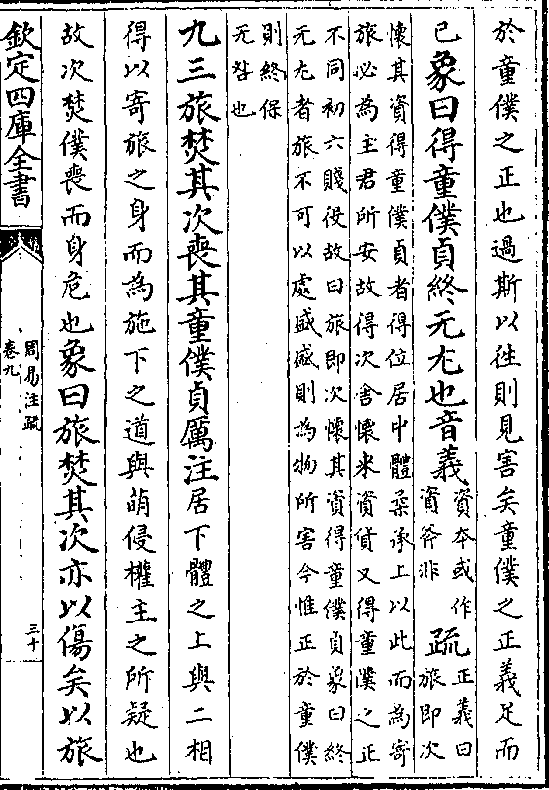 於童僕之正也過斯以往則見害矣童僕之正義足而
已象曰得童僕貞終无尤也音義資本或作資斧非疏正義曰旅即次
懷其資得童僕貞者得位居中體柔承上以此而為寄
旅必為主君所安故得次舍懷來資貨又得童僕之正
不同初六賤役故曰旅即次懷其資得童僕貞象曰終
无尤者旅不可以處盛盛則為物所害今惟正於童僕
則終保
无咎也
九三旅焚其次喪其童僕貞厲注居下體之上與二相
得以寄旅之身而為施下之道與萌侵權主之所疑也
故次焚僕喪而身危也象曰旅焚其次亦以傷矣以旅
欽定四庫全書
周易注疏
卷九
三十